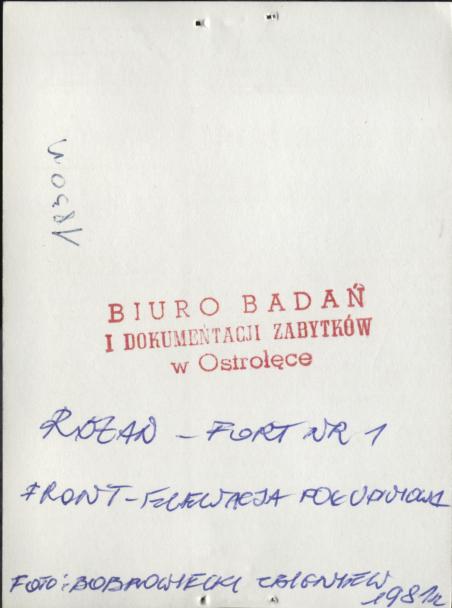 1830 N
BIURO BADAŃ
I DOKUMENTACJI ZABYTKÓW
w Ostrołęce
RÓŻAN – FORT NR 1
FRONT – ELEWACJA POŁUDNIOWA
FOTO: BOBROWIECKI ZBIGNIEW
1981r